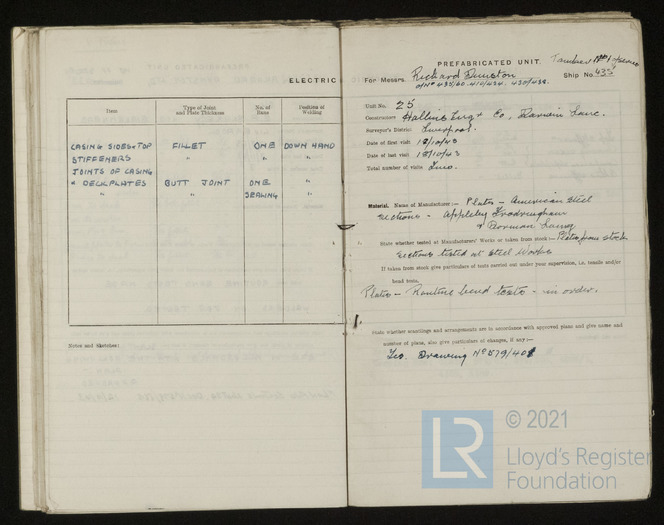 ELECTRIC
Item
Type of Joint and Plate Thickness
No. of Runs
Position of Welding
CASING SIDES & TOP FILLET ONE DOWN HAND
STIFFENERS " " "
JOINTS OF CASING
& DECKPLATES BUTT JOINT ONE "
" SEALING "
Notes and Sketches:
PREFABRICATED UNIT.
For Messrs. Richard Dunston Ship No. 435
Unit No. 25
Constructors Co, Lancs.
Surveyor's District Liverpool.
Date of first visit 18/10/43
Date of last visit 18/10/43
Total number of visits Two.
Material. Name of Manufacturer:— Plates — American Steel
Sections — Appleby Frodingham
& Dorman Long
State whether tested at Manufacturers' Works or taken from stock:— Plates from stock
Sections tested at Steel Works
If taken from stock give particulars of tests carried out under your supervision, i.e. tensile and/or
bend tests.
Plates — Routine bend tests — in order.
State whether scantlings and arrangements are in accordance with approved plans and give name and
number of plans, also give particulars of changes, if any:—
Yes. Drawing No 579/40
LR
© 2021
Lloyd's Register
Foundation